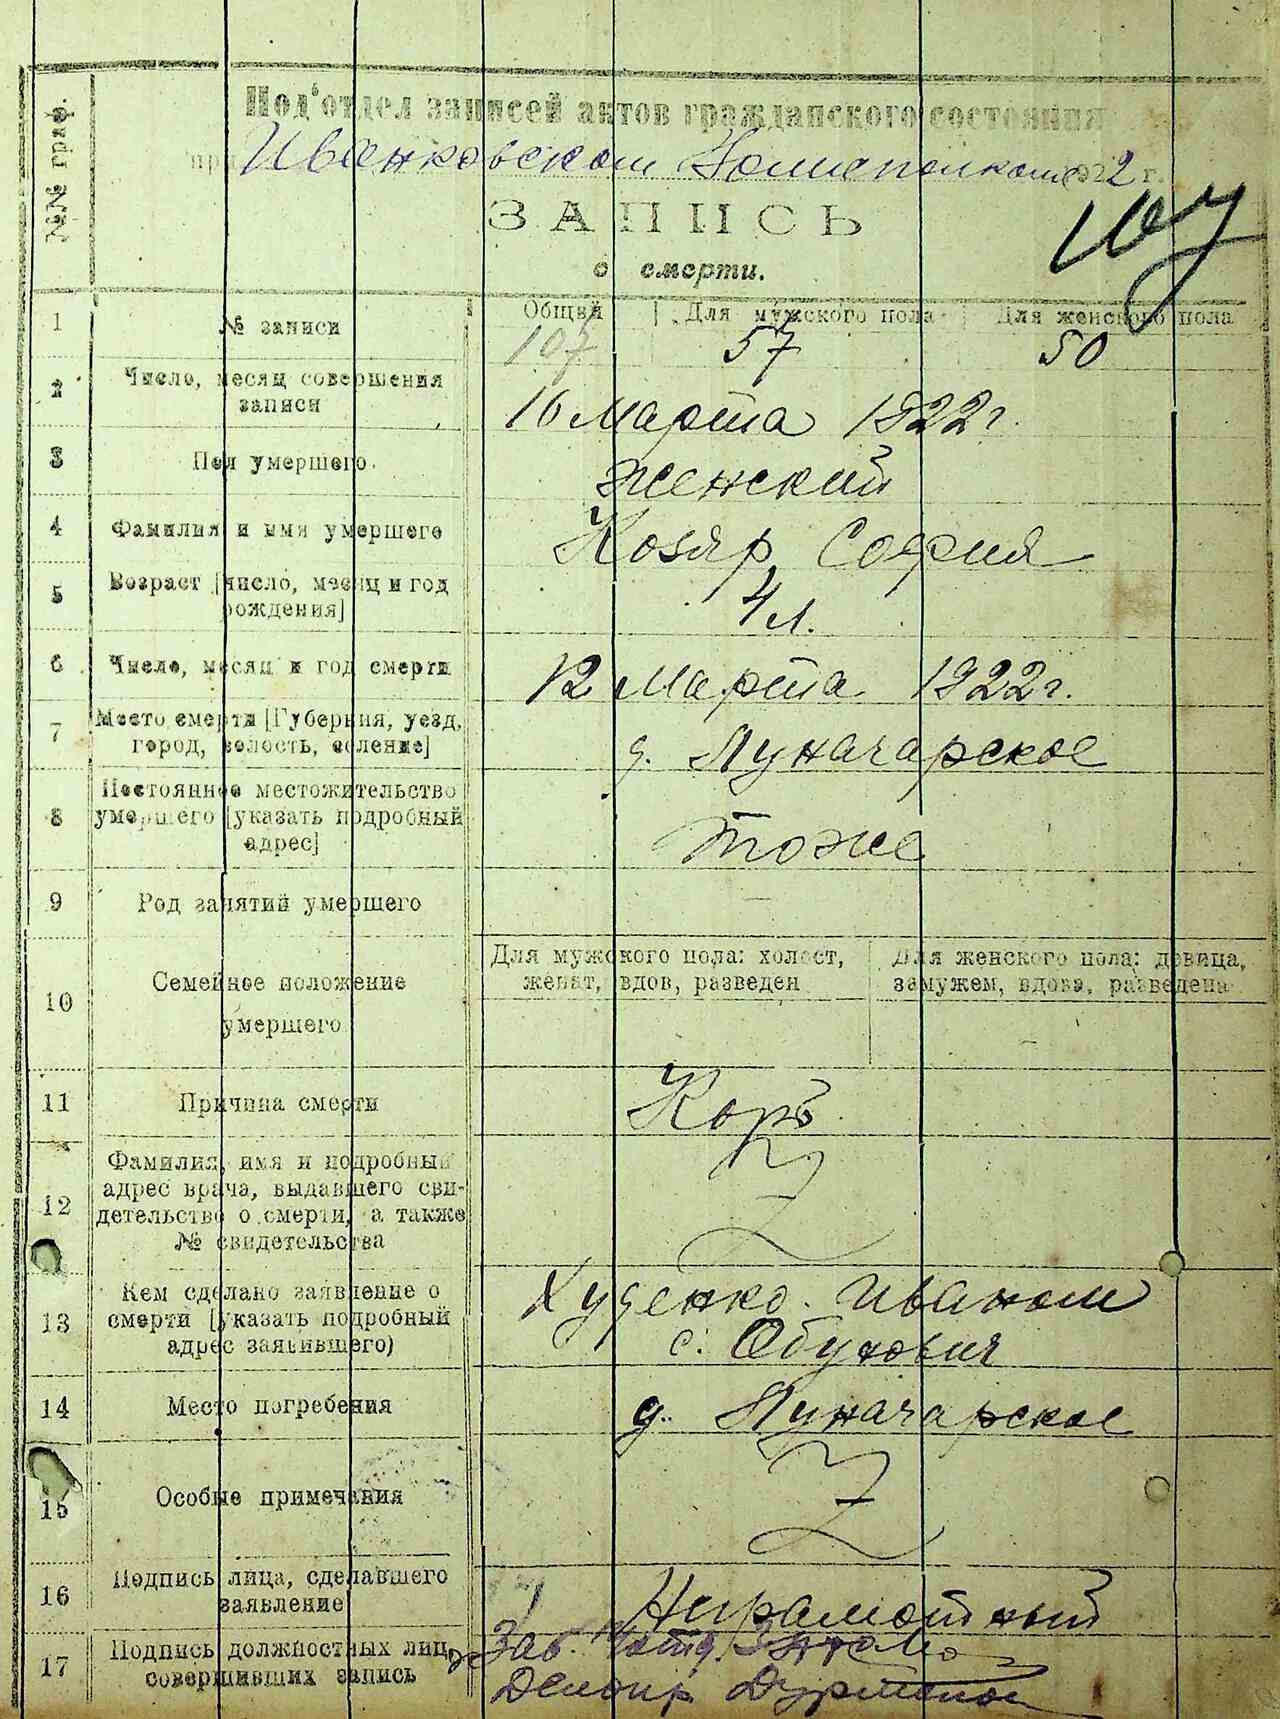 №№ граф.
Под'отдел записей актов гражданского состояния
при Иванковском Волисполкоме 1922 г.
ЗАПИСЬ
о смерти.
107
1 № записи Общий Для мужского пола Для женского пола
107 57 50
2 Число, месяц совершения
записи
16 Марта 1922 г.
3 Пол умершего.
женский
4 Фамилия и имя умершего
Козяр София
5 Возраст [число, месяц и год
рождения]
4 л.
6 Число, месяц и год смерти
12 Марта 1922 г.
7 Место смерти [Губерния, уезд,
город, волость, селение]
д. Луначарское
8 Постоянное местожительство
умершего [указать подробный
адрес]
тоже
9 Род занятий умершего
10 Семейное положение
умершего
Для мужского пола: холост,
женат, вдов, разведен
Для женского пола: девица,
замужем, вдова, разведена
11 Причина смерти
Корь
12 Фамилия, имя и подробный
адрес врача, выдавшего сви-
детельство о смерти, а также
№ свидетельства
13 Кем сделано заявление о
смерти [указать подробный
адрес заявившего)
Худенко Иваном
с. Обуховичи
14 Место погребения
д. Луначарское
15 Особые примечания
16 Подпись лица, сделавшего
заявление
Неграмотный
17 Подпись должностных лиц,
совершивших запись
Зав.
Делопр.